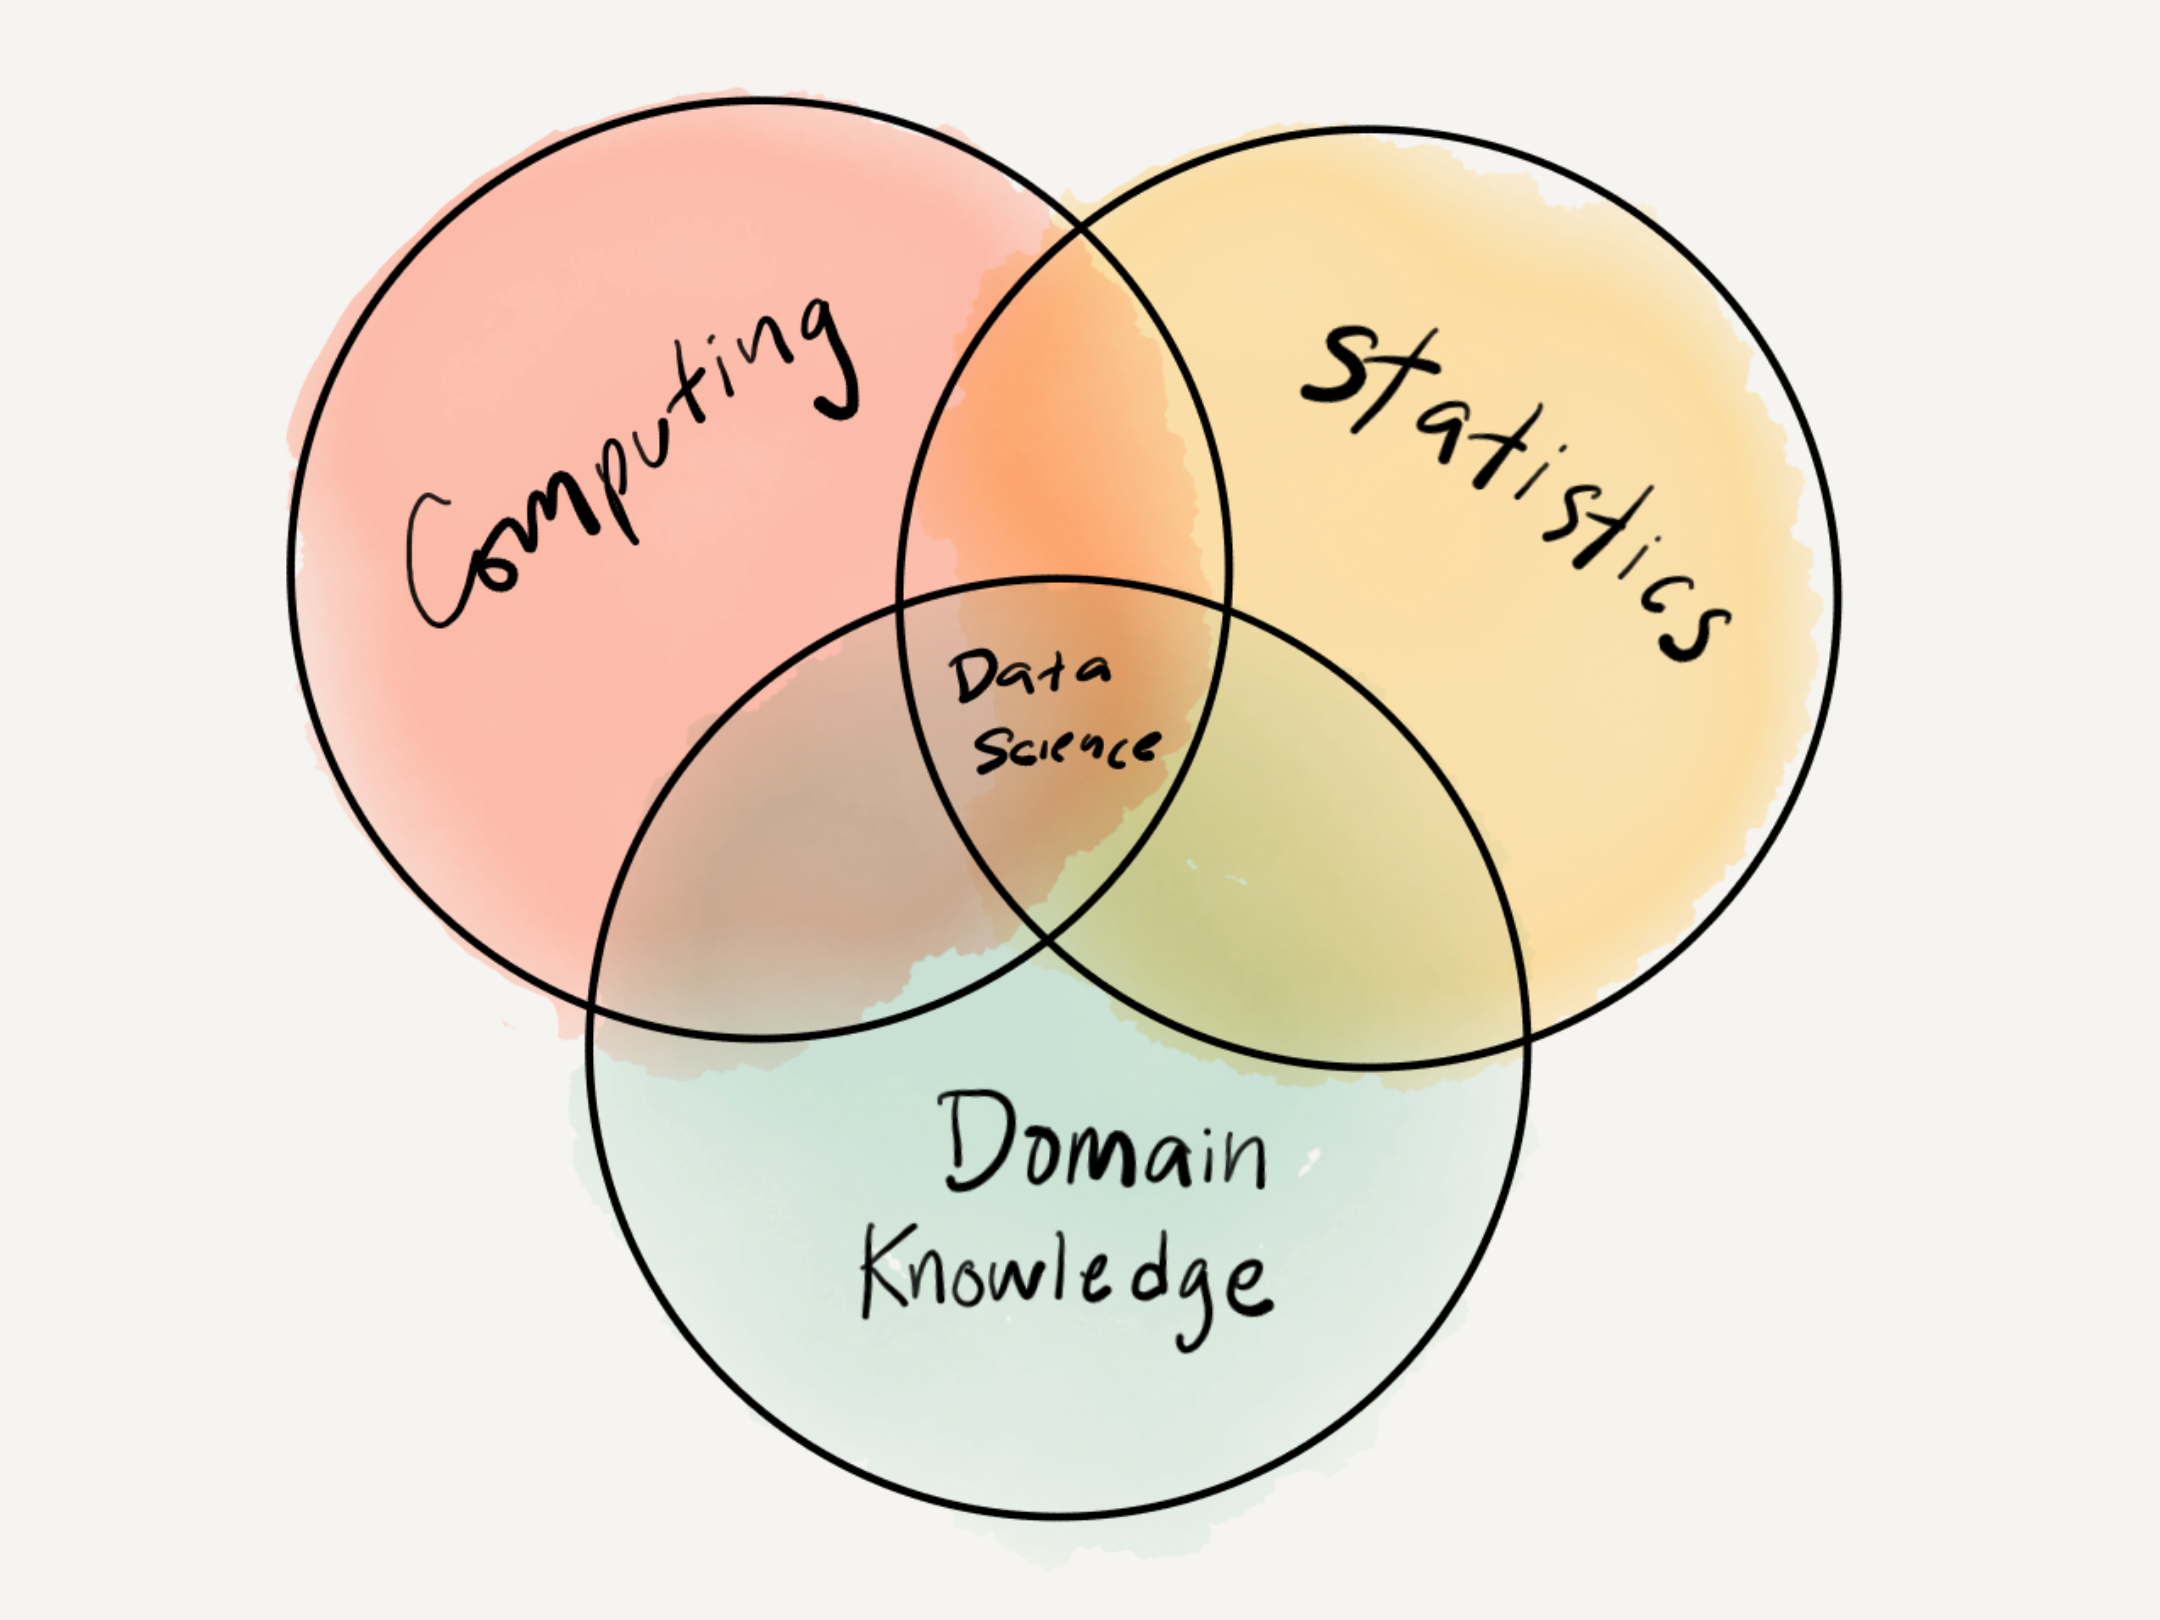 Computing
Statistics
Data
Science
Domain
Knowledge